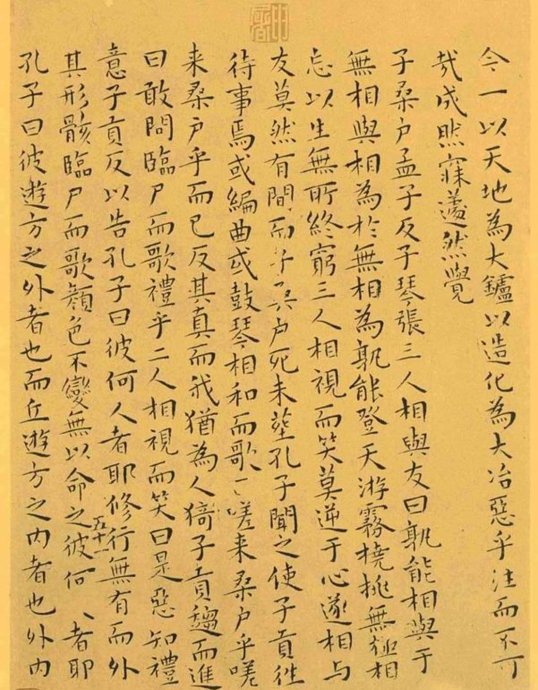 今一以天地為大鑪以造化為大冶惡乎注而不可
㢤成然寐蘧然覺
子桑户孟子反子琴張三人相與友曰孰能相與于
無相與相為於無相為孰能登天游霧橈挑無極相
忘以生無所終窮三人相視而笑莫逆于心遂相與
友莫然有間而子桑户死未塟孔子聞之使子貢徃
待事焉或編曲或鼓琴相和而歌曰嗟来桑户乎嗟
来桑户乎而已反其真而我猶為人猗子貢趨而進
曰敢問臨尸而歌禮乎二人相視而笑曰是惡知禮
意子貢反以告孔子曰彼何人者耶修行無有而外
其形骸臨尸而歌顏色不變無以命之彼何者耶
五十一
孔子曰彼遊方之外者也而丘遊方之内者也外内